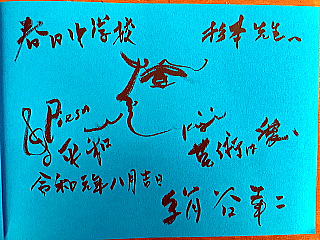 春日中学校
杉本先生へ
Poesa
平和
Kiji
芸術は健へ
令和元年八月吉日
絹谷幸二